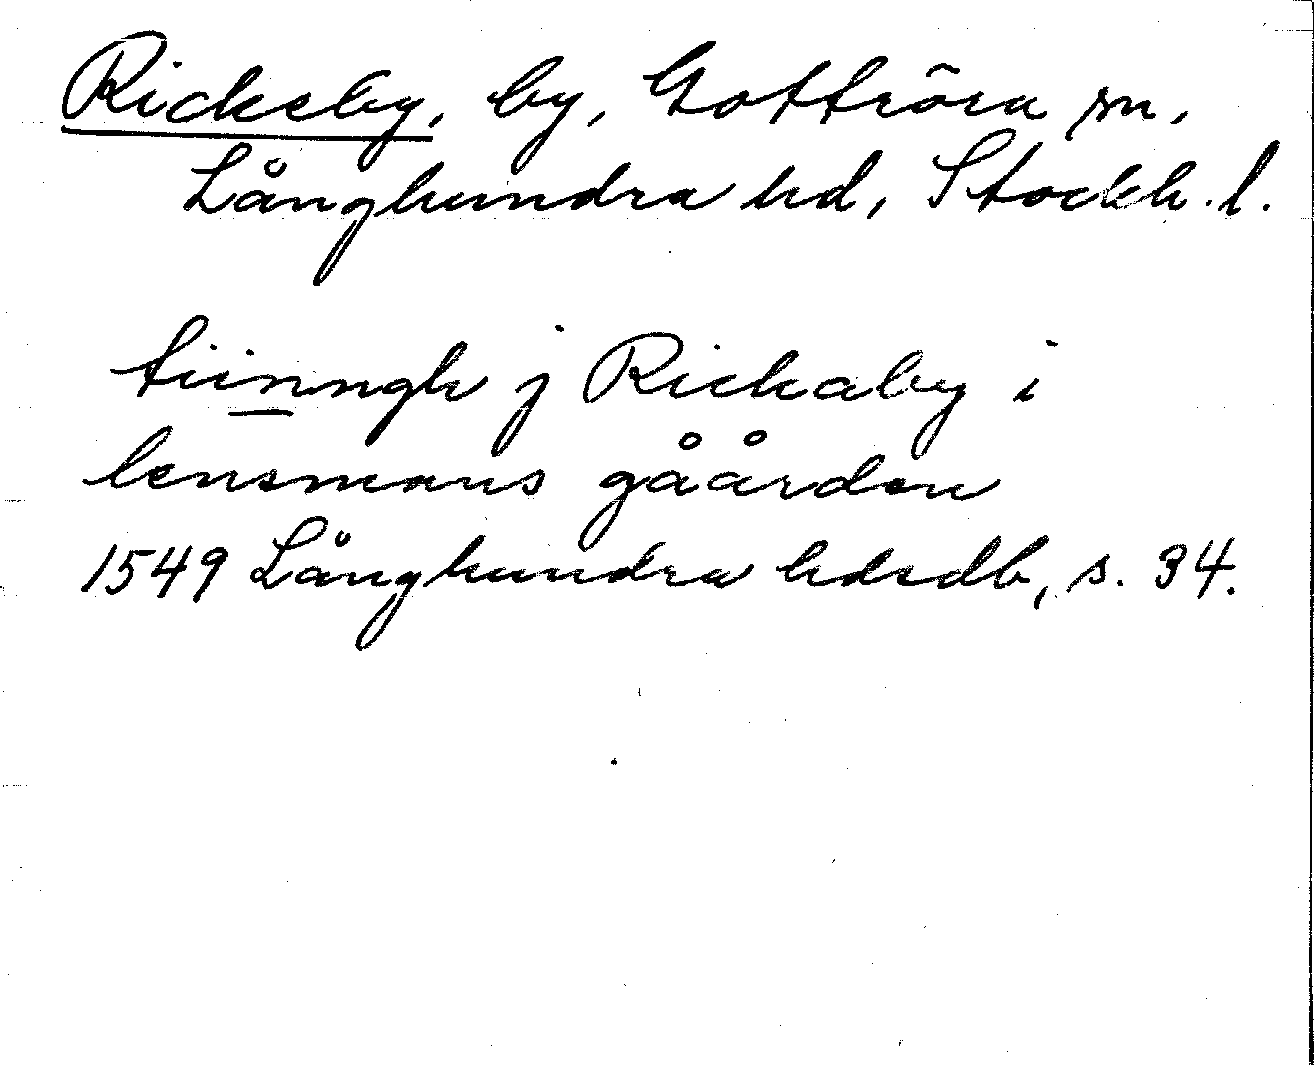 Rickeby, by, Gottröra sn,
Långhundra hd, Stockh. l.
tiinngh j Rickaby i
lensmans gåården
1549 Långhundra hdsdb, s. 34.